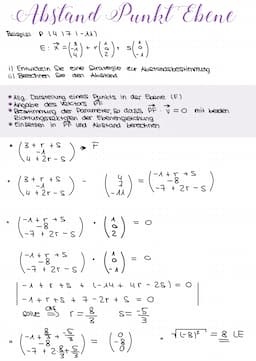 Abstand Punkt Ebene
Beispiel P (4|7|-11)
E: x⃗ = (3 -1 4) + r (1 0 2) + s (1 0 -1)
i) Entwickeln Sie eine Strategie zur Abstandsbestimmung
ii) Berechnen Sie den Abstand
* Allg. Darstellung eines Punkts in der Ebene (F)
* Angabe des Vektors PF
* Bestimmung der Parameter, so dass PF · v = 0 mit beiden
Richtungsvektoren der Ebenengleichung
* Einsetzen in PF und Abstand berechnen
• (3+r+s -1 4+2r-s) → F
• (3+r+s -1 4+2r-s) - (4 7 -11) = (-1+r+s
-7+2r-s)
• (-1+r+s -8 -7+2r-s) · (1 0 2) = 0
• (-1+r+s -8 -7+2r-s) · (1 0 -1) = 0
| -1+r+s + (-14+4r-2s) = 0
| -1+r+s + 7-2r+s = 0
solve ⇒ r = 8/3 s = -5/3
= (0 -8 0) • √(-8)² = 8 LE